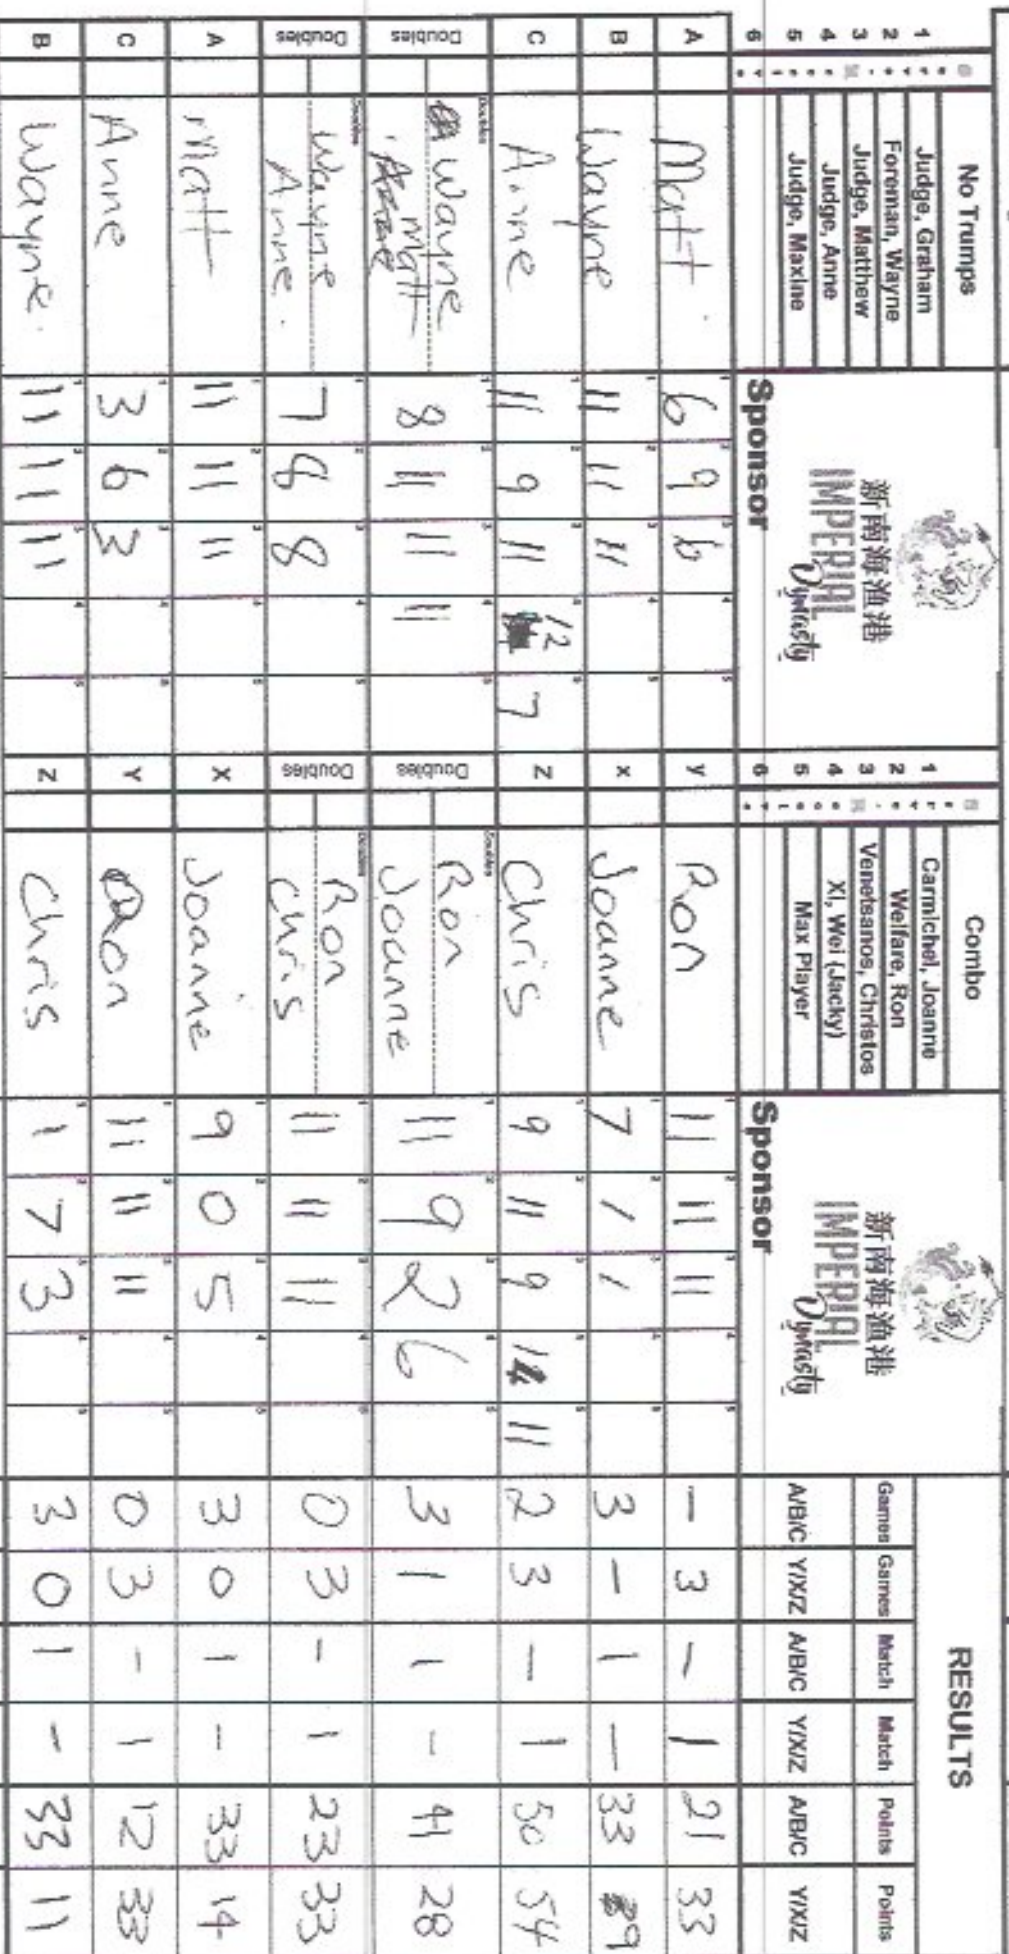 No Trumps
1 Judge, Graham
2 Foreman, Wayne
3 Judge, Matthew
4 Judge, Anne
5 Judge, Maxine
6
新南海渔港
IMPERIAL
Dynasty
Sponsor
Combo
1 Carmichel, Joanne
2 Welfare, Ron
3 Venetsanos, Christos
4 Xi, Wei (Jacky)
5 Max Player
6
新南海渔港
IMPERIAL
Dynasty
Sponsor
RESULTS
Games Games Match Match Points Points
A/B/C Y/X/Z A/B/C Y/X/Z A/B/C Y/X/Z
A Matt 6 9 6 Y Ron 11 11 11 - 3 - 1 21 33
B Wayne 11 11 11 X Joanne 7 1 1 3 - 1 - 33 9
C Anne 11 9 11 12 7 Z Chris 9 11 9 14 11 2 3 - 1 50 54
Doubles Wayne Matt 8 11 11 11 Doubles Ron Joanne 11 9 2 6 3 1 1 - 41 28
Doubles Wayne Anne. 7 8 8 Doubles Ron Chris 11 11 11 0 3 - 1 23 33
A Matt 11 11 11 X Joanne 9 0 5 3 0 1 - 33 14
C Anne 3 6 3 Y Ron 11 11 11 0 3 - 1 12 33
B Wayne. 11 11 11 Z Chris 1 7 3 3 0 1 - 33 11